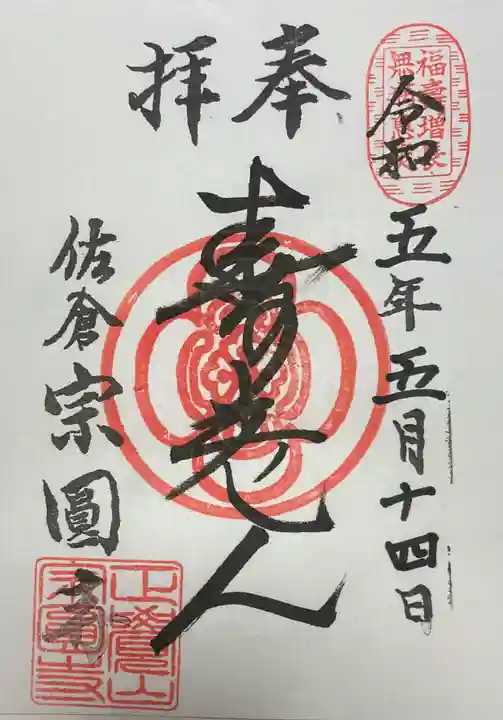 福壽増長
令和五年五月十四日
奉拝
壽老人
佐倉宗圓寺